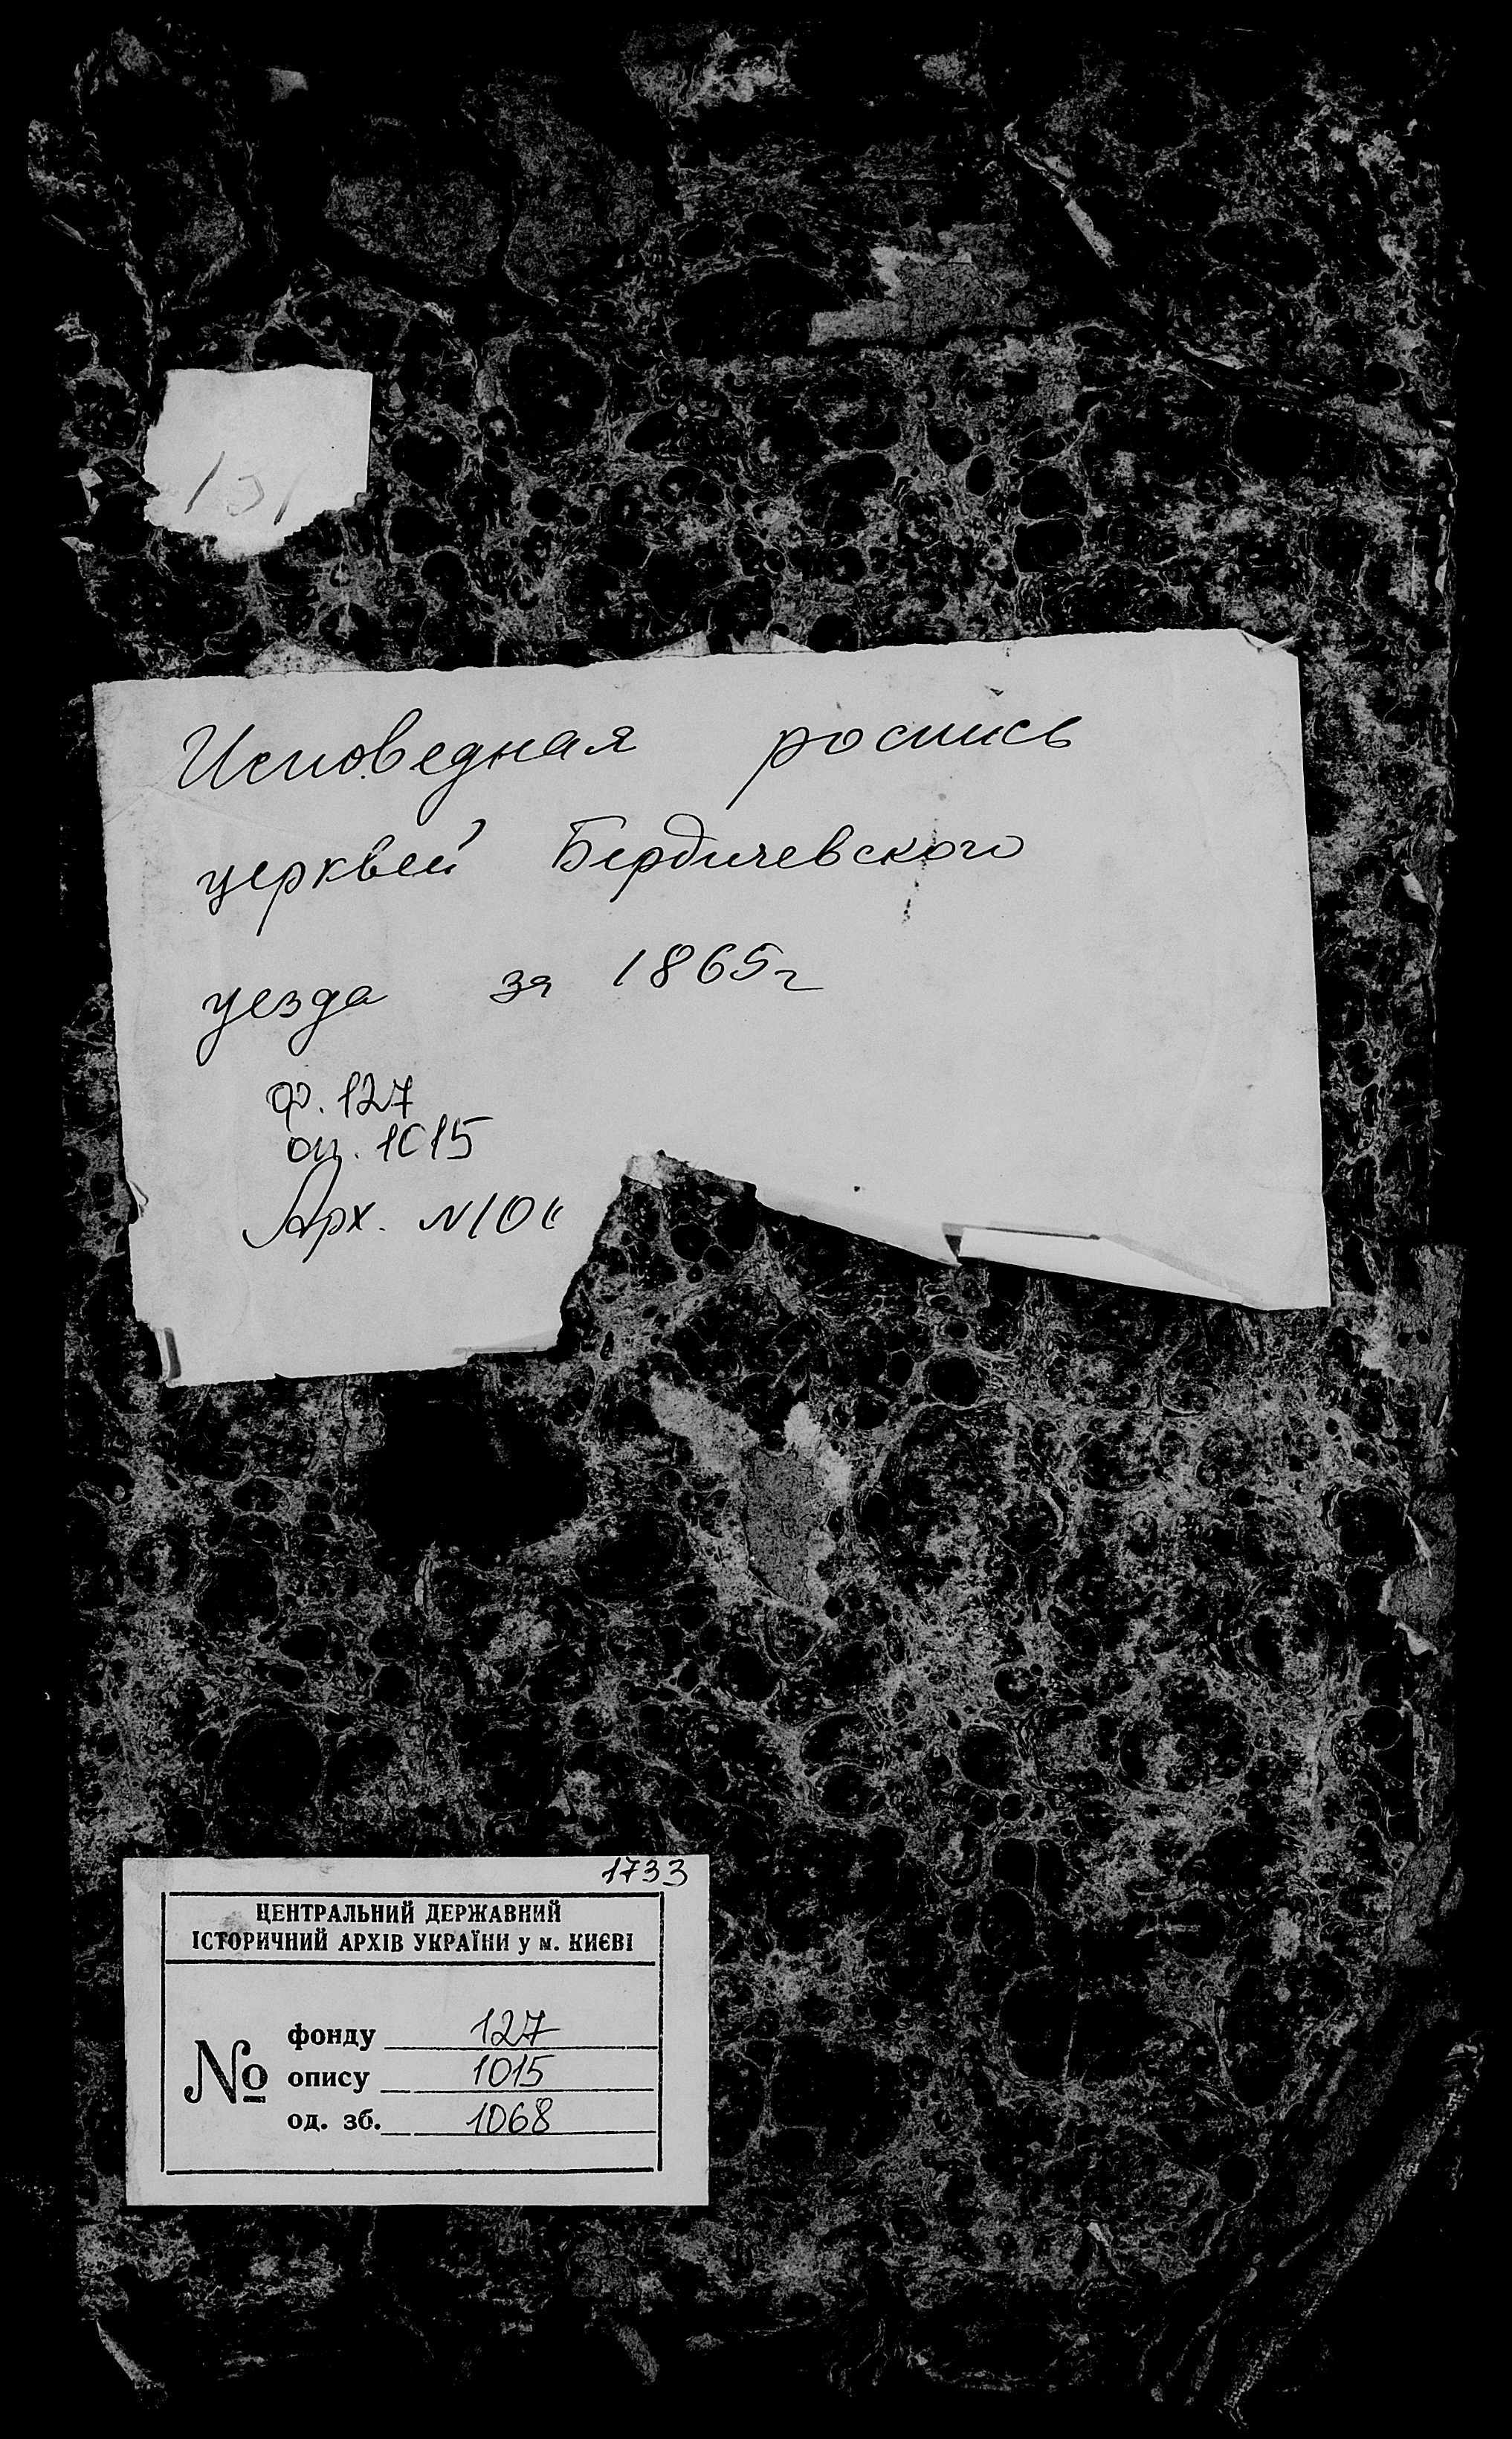 131
Исповедная роспись
церквей Бердичевского
уезда за 1865г
ф. 127
оп. 1015
Арх. №106
1733
ЦЕНТРАЛЬНИЙ ДЕРЖАВНИЙ
ІСТОРИЧНИЙ АРХІВ УКРАЇНИ у м. КИЄВІ
№
фонду 127
опису 1015
од. зб. 1068